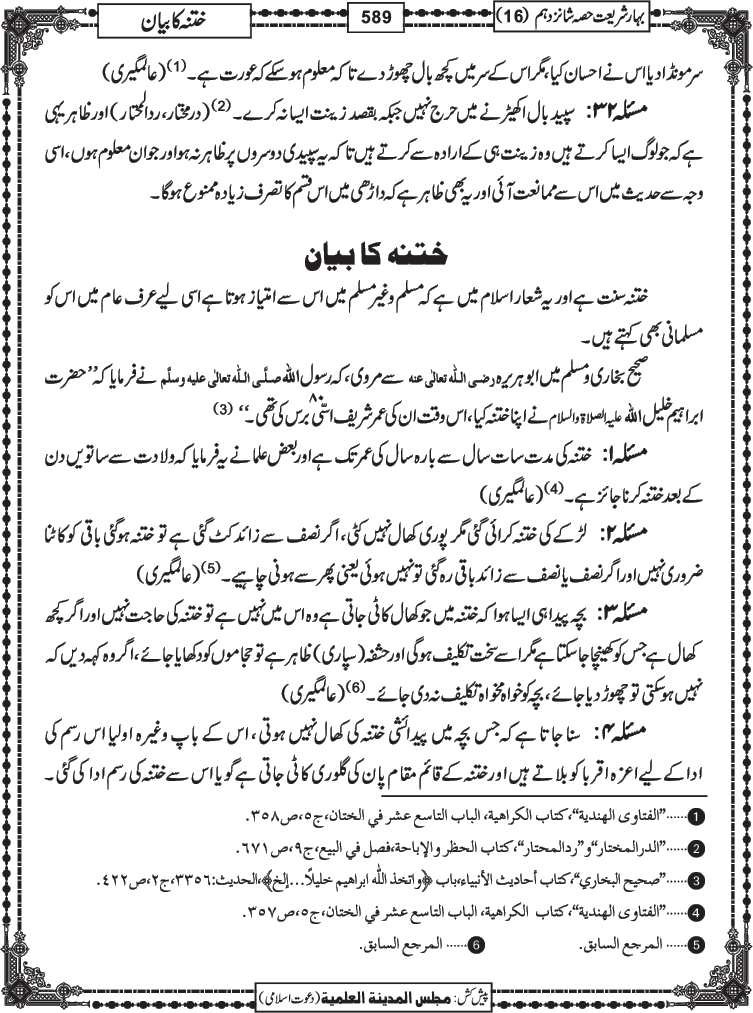 بہار شریعت حصہ شانزدہم (16)
589
ختنہ کا بیان
سر مونڈا دیا اس نے احسان کیا، مگر اس کے سر میں کچھ بال چھوڑ دے تا کہ معلوم ہو سکے کہ عورت ہے۔ (1) (عالمگیری)
مسئلہ ۳۲: سپید بال اکھیڑنے میں حرج نہیں جبکہ بقصد زینت ایسا نہ کرے۔ (2) (در مختار، ردالمحتار) اور ظاہر یہی
ہے کہ جو لوگ ایسا کرتے ہیں وہ زینت ہی کے ارادہ سے کرتے ہیں تا کہ یہ سپیدی دوسروں پر ظاہر نہ ہو اور جوان معلوم ہوں، اسی
وجہ سے حدیث میں اس سے ممانعت آئی اور یہ بھی ظاہر ہے کہ داڑھی میں اس قسم کا تصرف زیادہ ممنوع ہوگا۔
ختنہ کا بیان
ختنہ سنت ہے اور یہ شعار اسلام میں ہے کہ مسلم و غیر مسلم میں اس سے امتیاز ہوتا ہے اسی لیے عرف عام میں اس کو
مسلمانی بھی کہتے ہیں۔
صحیح بخاری و مسلم میں ابو ہریرہ رضی اللہ تعالٰی عنہ سے مروی، کہ رسول اللہ صلَّی اللہ تعالٰی علیہ وسلَّم نے فرمایا کہ ’’حضرت
ابراہیم خلیل اللہ علیہ الصلاۃ والسلام نے اپنا ختنہ کیا، اس وقت ان کی عمر شریف اسّی ۸۰ برس کی تھی۔‘‘ (3)
مسئلہ ۱: ختنہ کی مدت سات سال سے بارہ سال کی عمر تک ہے اور بعض علما نے یہ فرمایا کہ ولادت سے ساتویں دن
کے بعد ختنہ کرنا جائز ہے۔ (4) (عالمگیری)
مسئلہ ۲: لڑکے کی ختنہ کرائی گئی مگر پوری کھال نہیں کٹی، اگر نصف سے زائد کٹ گئی ہے تو ختنہ ہوگئی باقی کو کاٹنا
ضروری نہیں اور اگر نصف یا نصف سے زائد باقی رہ گئی تو نہیں ہوئی یعنی پھر سے ہونی چاہیے۔ (5) (عالمگیری)
مسئلہ ۳: بچہ پیدا ہی ایسا ہوا کہ ختنہ میں جو کھال کاٹی جاتی ہے وہ اس میں نہیں ہے تو ختنہ کی حاجت نہیں اور اگر کچھ
کھال ہے جس کو کھینچا جاسکتا ہے مگر اسے سخت تکلیف ہوگی اور حشفہ (سپاری) ظاہر ہے تو حجاموں کو دکھایا جائے، اگر وہ کہہ دیں کہ
نہیں ہوسکتی تو چھوڑ دیا جائے، بچہ کو خواہ مخواہ تکلیف نہ دی جائے۔ (6) (عالمگیری)
مسئلہ ۴: سنا جاتا ہے کہ جس بچہ میں پیدائشی ختنہ کی کھال نہیں ہوتی، اس کے باپ وغیرہ اولیا اس رسم کی
ادا کے لیے اعزہ اقربا کو بلاتے ہیں اور ختنہ کے قائم مقام پان کی گلوری کاٹی جاتی ہے گویا اس سے ختنہ کی رسم ادا کی گئی۔
1 ......”الفتاوى الهندية“،كتاب الكراهية، الباب التاسع عشر في الختان،ج٥،ص٣٥٨.
2 ......”الدرالمختار“و”ردالمحتار“، كتاب الحظر والإباحة،فصل في البيع،ج٩،ص٦٧١.
3 ......”صحيح البخاري“،كتاب أحاديث الأنبياء،باب ﴿واتخذ الله ابراهيم خليلًا...إلخ﴾،الحديث:٣٣٥٦،ج٢،ص٤٢٢.
4 ......”الفتاوى الهندية“،كتاب الكراهية، الباب التاسع عشر في الختان،ج٥،ص٣٥٧.
5 ...... المرجع السابق. 6 ...... المرجع السابق.
پیش کش: مجلس المدینة العلمیة (دعوت اسلامی)